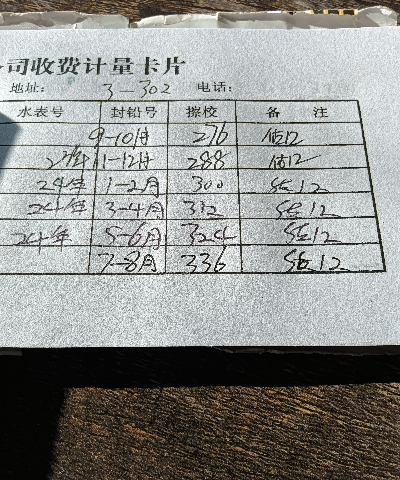 司收费计量卡片
地址: 3-302 电话:
水表号 封铅号 擦校 备 注
9-10月 276 估12
23年 11-12月 288 估12
24年 1-2月 300 估12
24年 3-4月 312 估12
24年 5-6月 324 估12
7-8月 336 估12